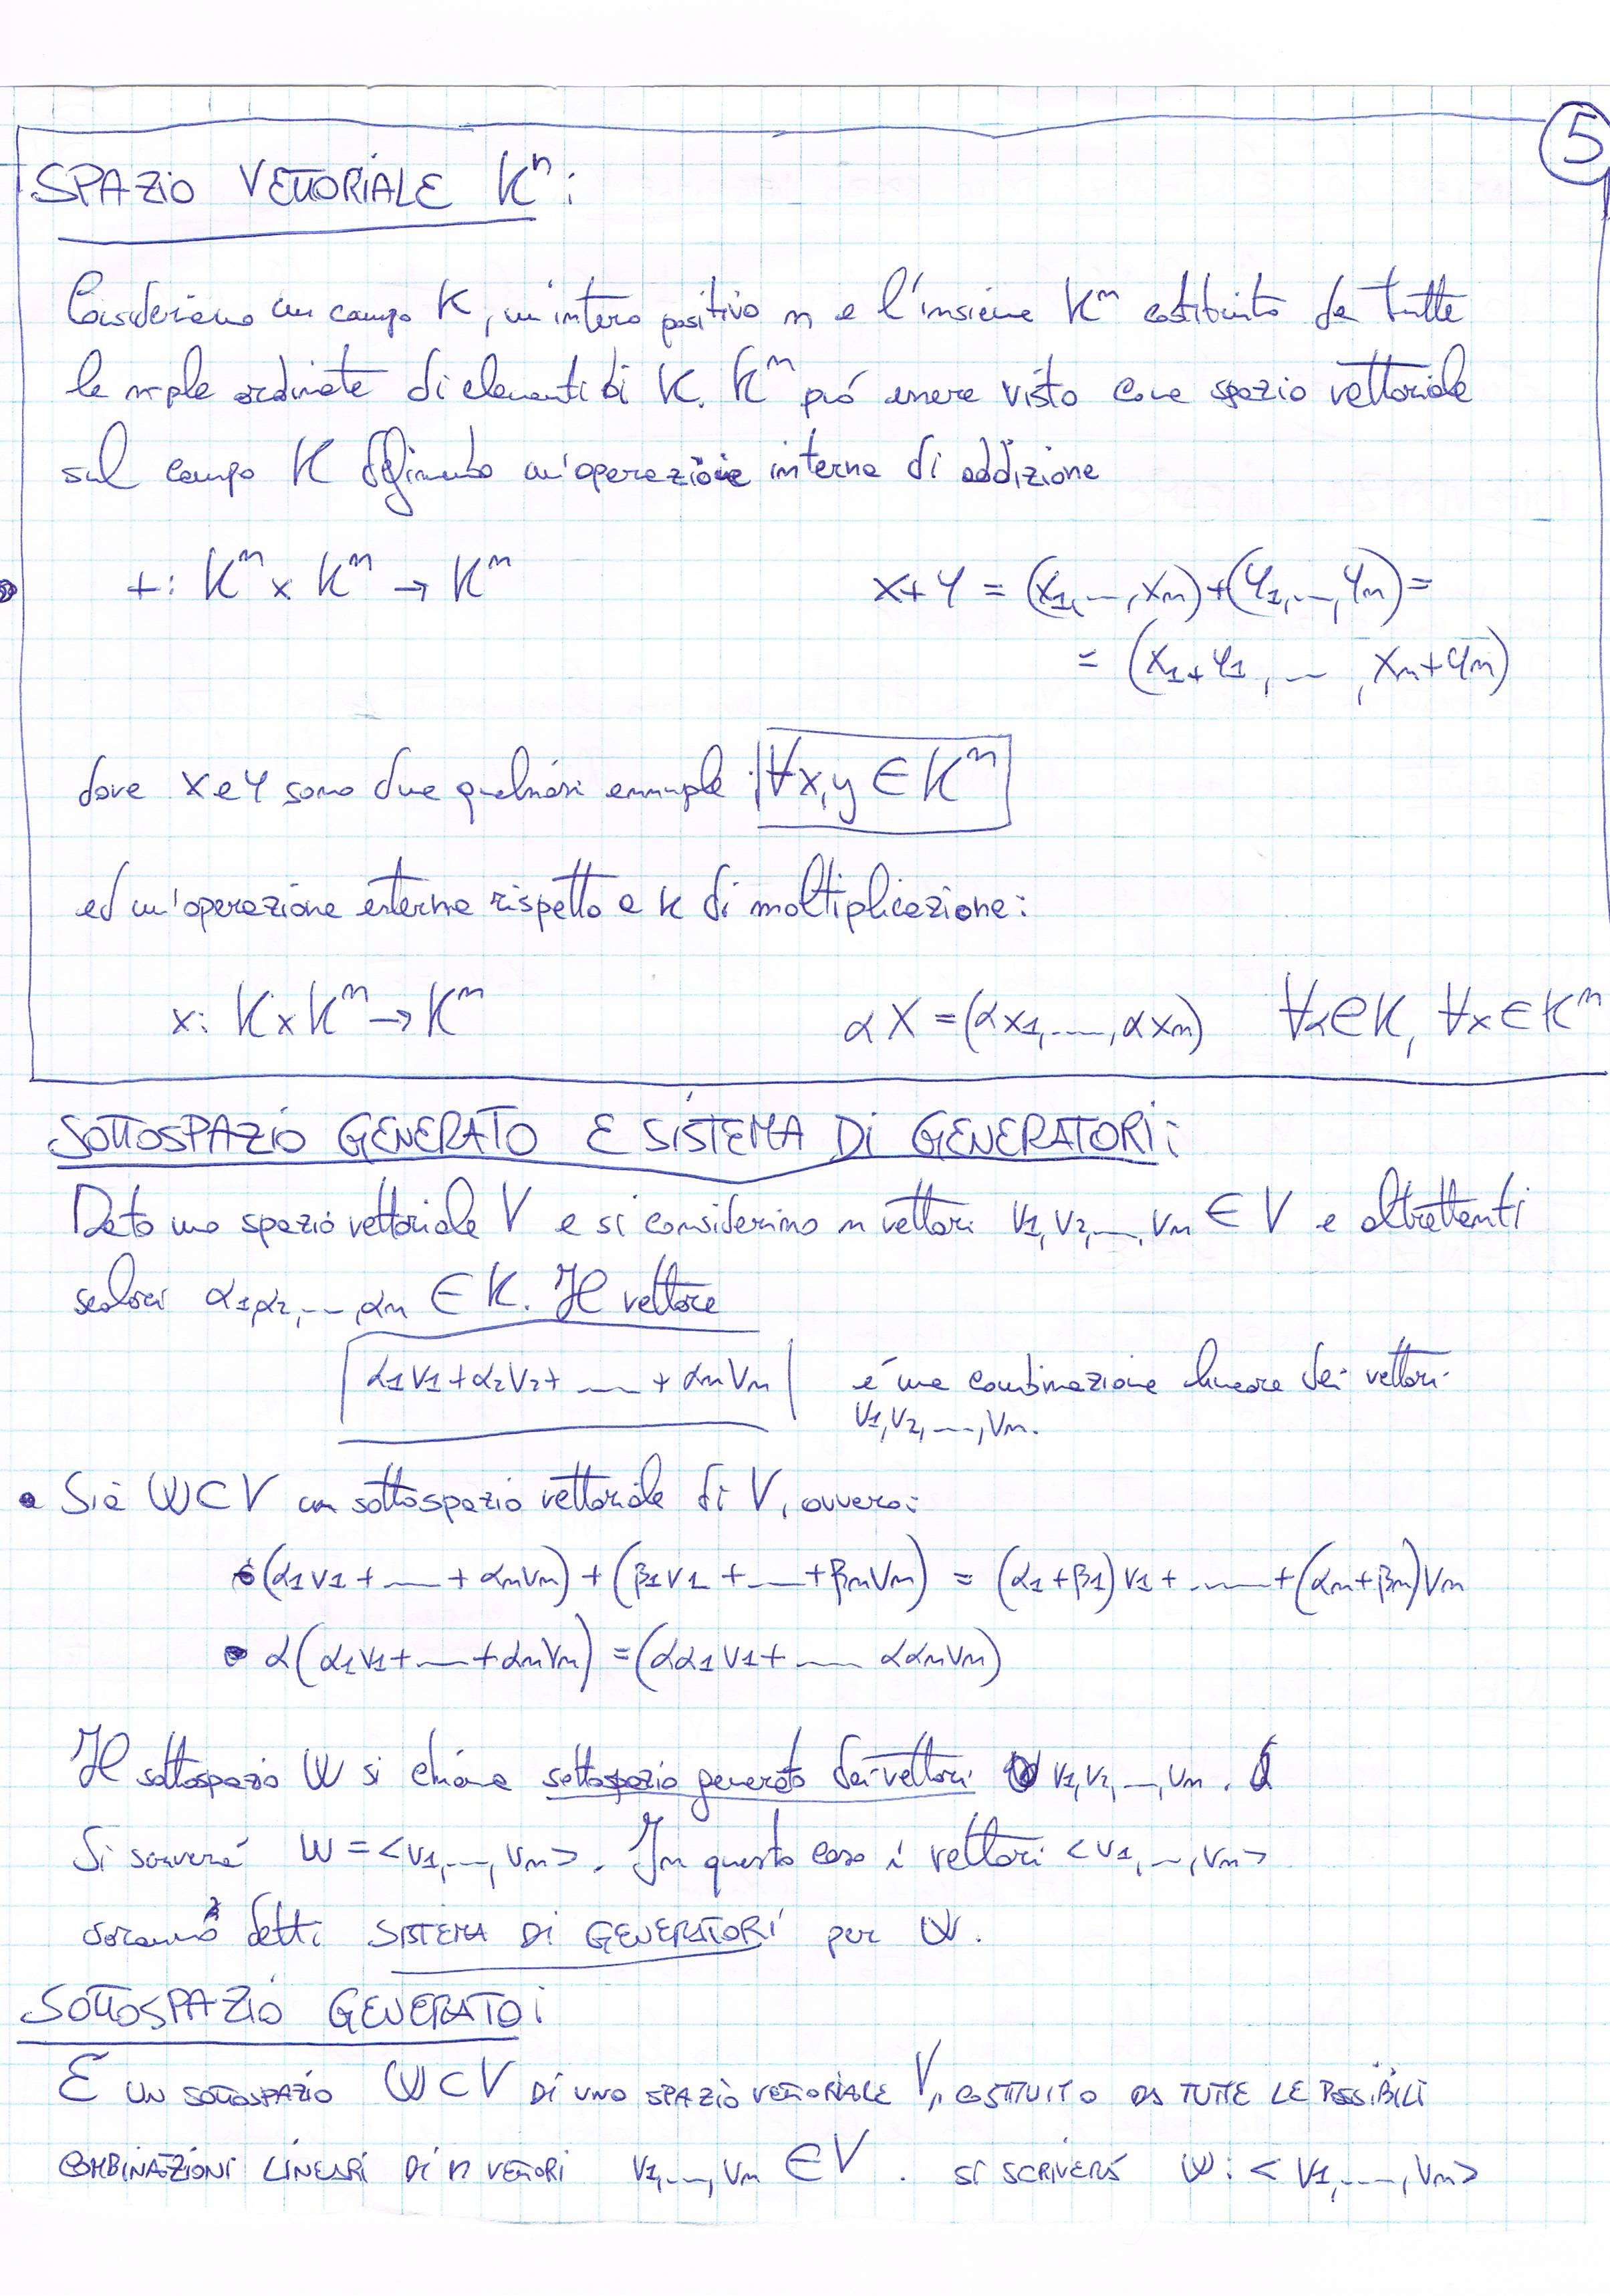 5
SPAZIO VETTORIALE Kⁿ:
Consideriamo un campo K, un intero positivo n e l'insieme Kⁿ costituito da tutte
le n-ple ordinate di elementi di K. Kⁿ può essere visto come spazio vettoriale
sul campo K definendo un'operazione interna di addizione
+: Kⁿ x Kⁿ → Kⁿ x+y = (x1,...,xn)+(y1,...,yn)=
= (x1+y1, ... , xn+yn)
dove x e y sono due qualsiasi ennuple: ∀x,y ∈ Kⁿ
ed un'operazione esterna rispetto a K di moltiplicazione:
x: K x Kⁿ → Kⁿ αX = (αx1,...,αxn) ∀α∈K, ∀x∈Kⁿ
SOTTOSPAZIO GENERATO E SISTEMA DI GENERATORI:
Dato uno spazio vettoriale V e si considerino n vettori v1,v2,...,vn ∈ V e altrettanti
scalari α1,α2,...,αn ∈ K. Il vettore
α1v1+α2v2+ ... + αnvn è una combinazione lineare dei vettori
v1,v2,...,vn.
• Sia W⊂V un sottospazio vettoriale di V, ovvero:
• (α1v1+ ... + αnvn) + (β1v1 + ... + βnvn) = (α1+β1)v1+ ... +(αn+βn)vn
• α(α1v1+ ... +αnvn) = (αα1v1+ ... ααnvn)
Il sottospazio W si chiama sottospazio generato dai vettori v1,v2,...,vn.
Si scriverà W = <v1,...,vn>. In questo caso i vettori <v1,...,vn>
saranno detti SISTEMA DI GENERATORI per W.
SOTTOSPAZIO GENERATO:
È UN SOTTOSPAZIO W⊂V DI UNO SPAZIO VETTORIALE V, COSTITUITO DA TUTTE LE POSSIBILI
COMBINAZIONI LINEARI DI n VETTORI v1,...,vn ∈V. SI SCRIVERÀ W: <v1,...,vn>